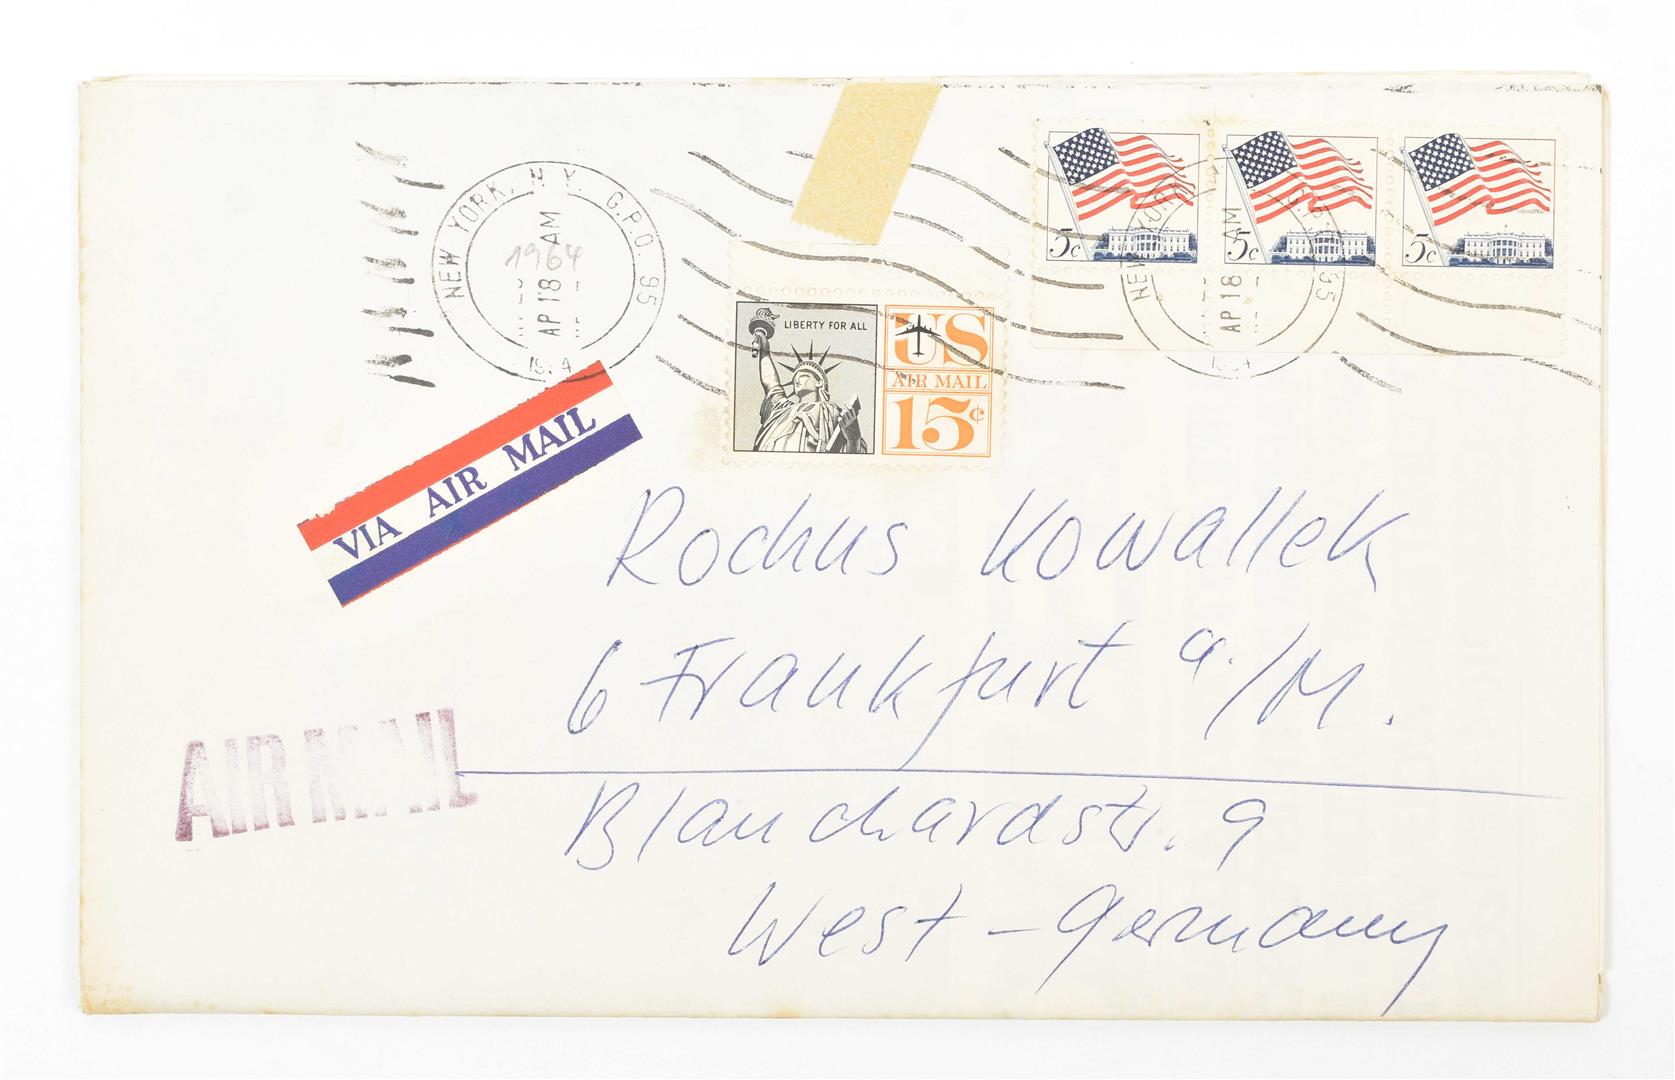 NEW YORK, N.Y. G.P.O. 95
1964
AM
AP 18
LIBERTY FOR ALL
US
AIR MAIL
15¢
5c
5c
5c
NEW YO
G.P. 95
AM
AP 18
VIA AIR MAIL
AIR MAIL
Rochus Kowallek
6 Frankfurt a./M.
Blanchardstr. 9
West-Germany